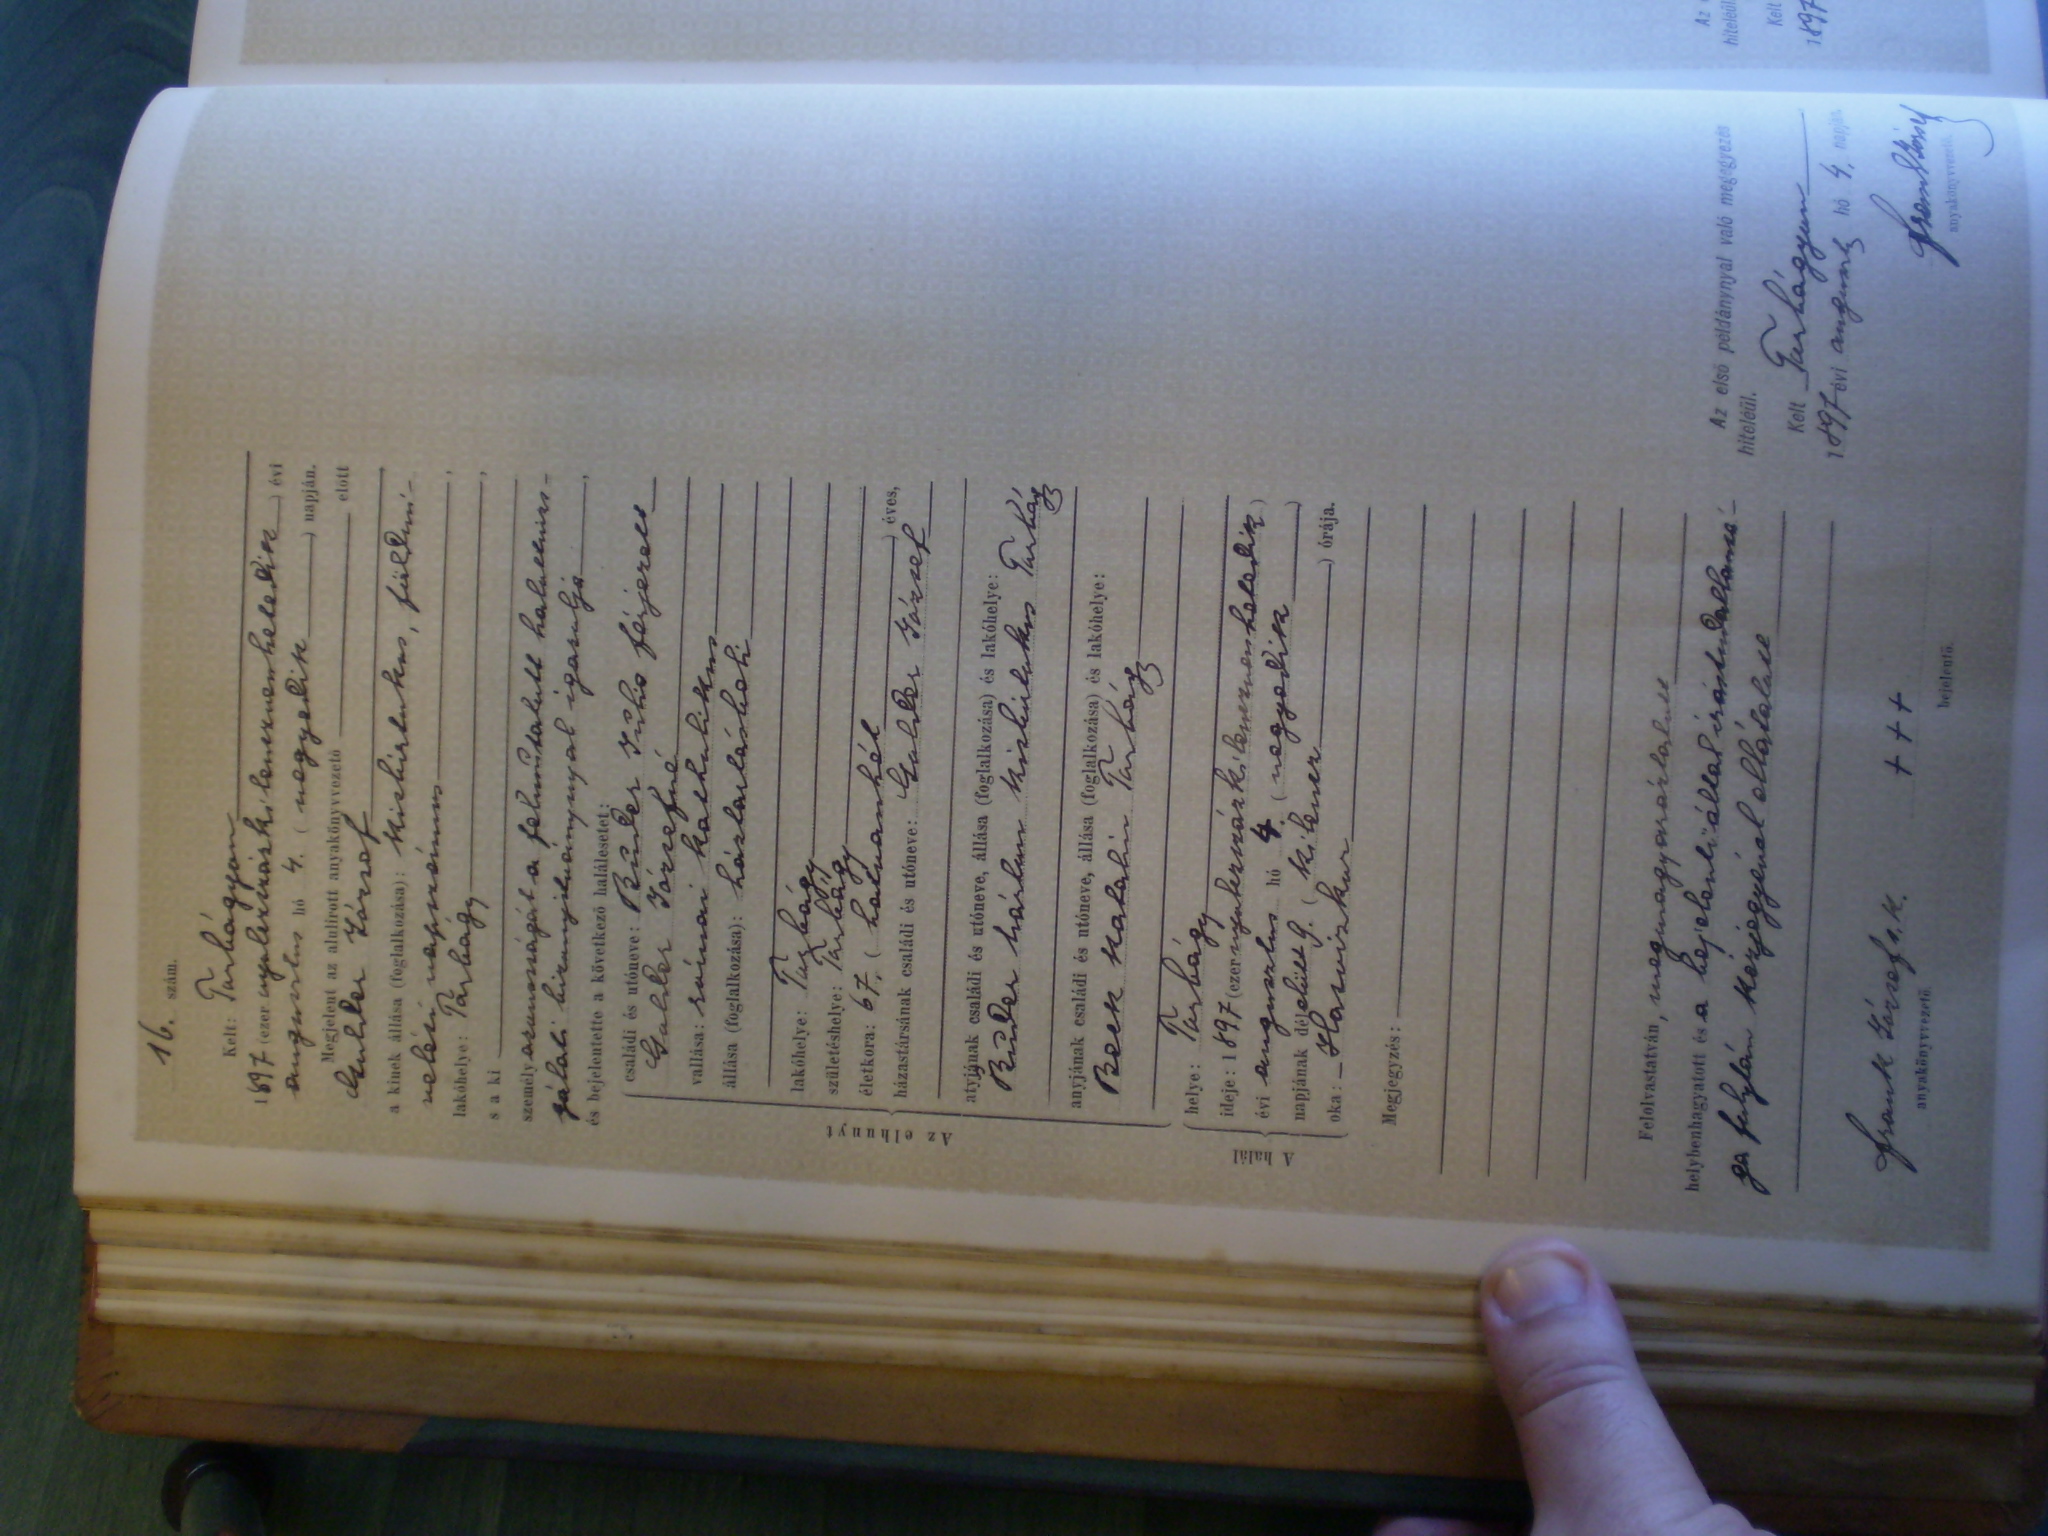 16. szám.
Kelt: Tarbágyon
1897 (ezer nyolczszázkilenczvenhetedik) évi
augusztus hó 4. (negyedik) napján.
Megjelent az alulirott anyakönyvvezető előtt
József
a kinek állása (foglalkozása): kisbirtokos, földmi-
velési napszámos,
lakóhelye: Tarbágy,
s a ki
személyazonosságát a felmutatott haláleset vizs-
gálati bizonyitványnyal igazolja,
és bejelentette a következő halálesetet:
Az elhunyt
családi és utóneve: Binder Julis férjezett
Gubler Józsefné
vallása: római katholikus
állása (foglalkozása): háztartásbeli
lakóhelye: Tarbágy
születéshelye: Tarbágy
életkora: 67. (hatvanhét) éves,
házastársának családi és utóneve: Gubler József
atyjának családi és utóneve, állása (foglalkozása) és lakóhelye:
Binder kisbirtokos Tarbágy
anyjának családi és utóneve, állása (foglalkozása) és lakóhelye:
Beck Katalin Tarbágy
A halál
helye: Tarbágy
ideje: 1897 (ezernyolczszázkilenczvenhetedik)
évi augusztus hó 4 (negyedik)
napjának délelőtt 9. (kilencz) órája.
oka:
Megjegyzés:
Felolvastatván, megmagyaráztatott
helybenhagyatott és a bejelentő által irástudatlansá-
ga folytán kézjegyével elláttatott
Frank József s.k.
anyakönyvvezető
+ + +
bejelentő.
Az első példánynyal való megegyezés
hiteléül.
Kelt Tarbágyon
1897 évi auguszt hó 4. napján.
Frank József
anyakönyvvezető.
hiteléül.
Kelt
1897